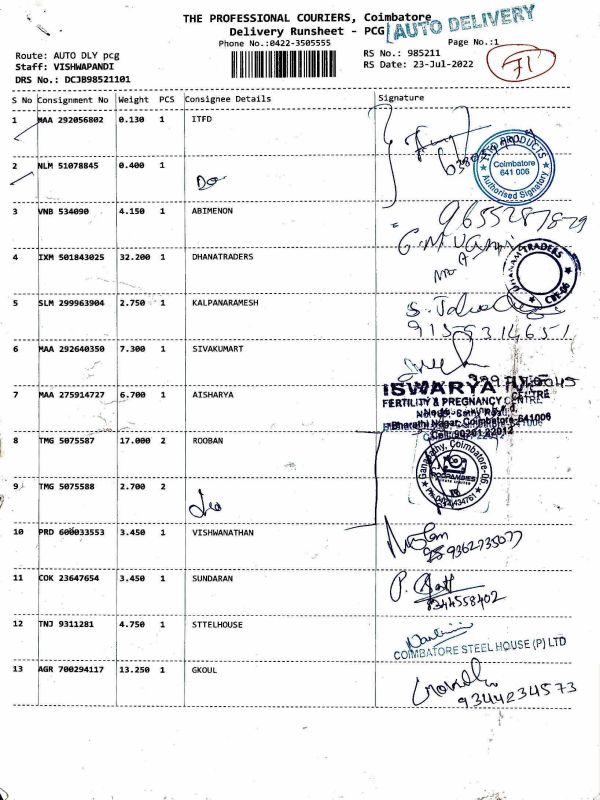 THE PROFESSIONAL COURIERS, Coimbatore
AUTO DELIVERY
Delivery Runsheet - PCG
Phone No.:0422-3505555
Page No.:1
71
Route: AUTO DLY pcg
RS No.: 985211
Staff: VISHWAPANDI
RS Date: 23-Jul-2022
DRS No.: DCJB98521101
S No Consignment No Weight PCS Consignee Details Signature
1 MAA 292056802 0.130 1 ITFD
PRODUCTS
Coimbatore
641 006
Authorised Signatory
2 NLM 51078845 0.400 1
Do
3 VNB 534090 4.150 1 ABIMENON
9655287829
4 IXM 501843025 32.200 1 DHANATRADERS
TRADERS
CBE-06
5 SLM 299963904 2.750 1 KALPANARAMESH
9159314651
6 MAA 292640350 7.300 1 SIVAKUMART
7 MAA 275914727 6.700 1 AISHARYA
ISWARYA
FERTILITY & PREGNANCY CENTRE
Bharathi Nagar, Coimbatore-641006
8 TMG 5075587 17.000 2 ROOBAN
Ganapathy, Coimbatore-06
9 TMG 5075588 2.700 2
10 PRD 600033553 3.450 1 VISHWANATHAN
9362735077
11 COK 23647654 3.450 1 SUNDARAN
P.
8344558402
12 TNJ 9311281 4.750 1 STTELHOUSE
COIMBATORE STEEL HOUSE (P) LTD
13 AGR 700294117 13.250 1 GKOUL
9344234573